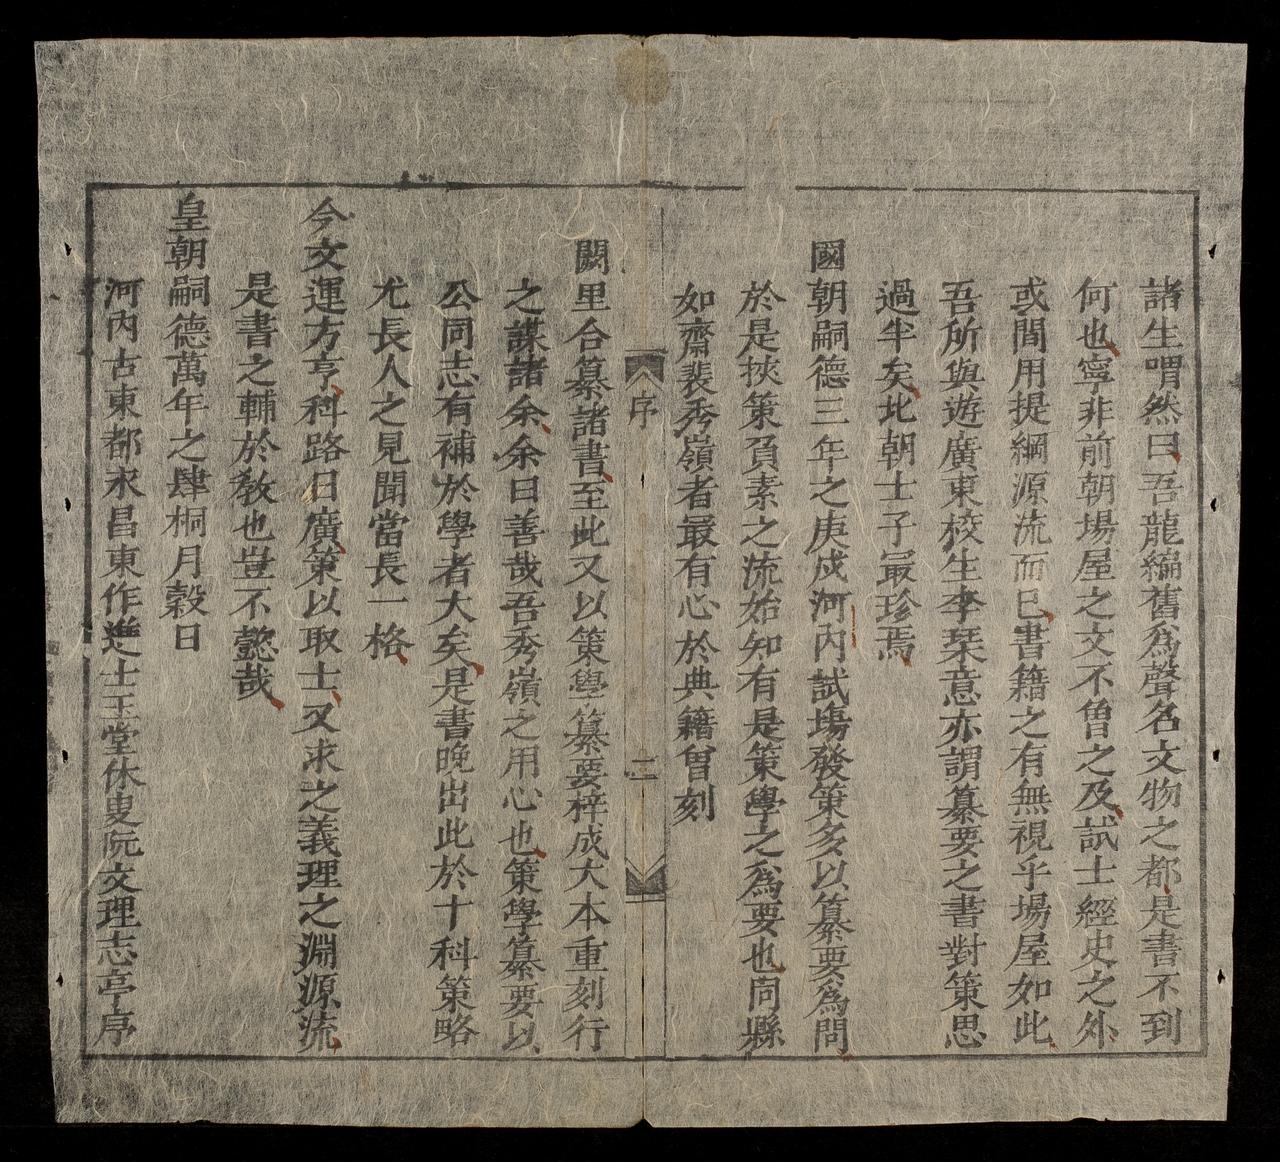 諸生喟然曰吾龍編舊爲聲名文物之都是書不到
何也寧非前朝場屋之文不曾之及試士經史之外
或間用提綱源流而已書籍之有無視乎場屋如此
吾所與遊廣東校生李琹意亦謂纂要之書對策思
過半矣北朝士子最珍焉
國朝嗣德三年之庚戍河内試塲發策多以纂要爲問
於是挾策負素之流始知有是策學之爲要也同縣
如齋裴秀嶺者最有心於典籍曾刻
序
二
闕里合纂諸書至此又以策學纂要梓成大本重刻行
之謀諸余余曰善哉吾秀嶺之用心也策學纂要以
公同志有補於學者大矣是書晚出此於十科策略
尤長人之見聞當長一格
今文運方亨科路日廣策以取士又求之義理之淵源流
是書之輔於敎也豈不懿哉
皇朝嗣德萬年之肆桐月穀日
河内古東都永昌東作進士玉堂休叟阮文理志亭序